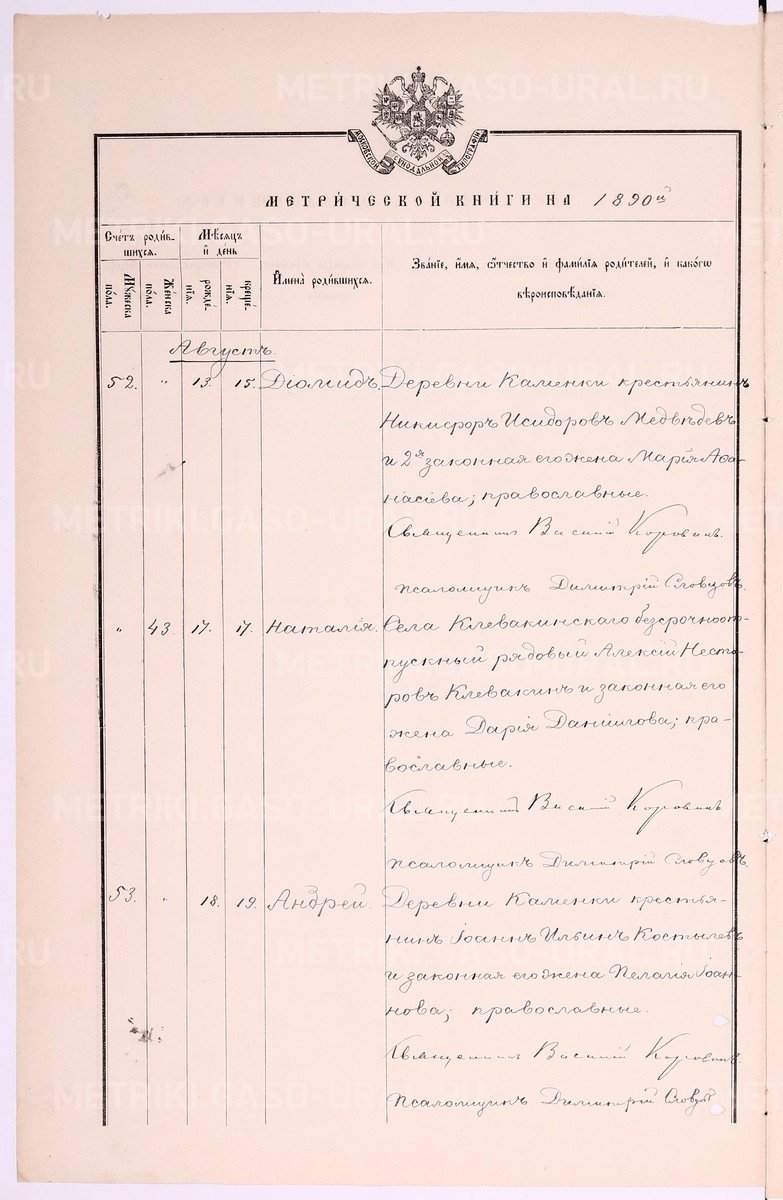 МОСКОВСКОЙ СѴНОДАЛЬНОЙ ТИПОГРАФІИ
МЕТРИ́ЧЕСКОЙ КНИ́ГИ НА 1890й
Сче́тъ роди́вшихся.
Мѣ́сяцъ и҆ де́нь
И҆мена̀ роди́вшихся.
Зва́нїе, и҆́мя, ѻ҆́тчество и҆ фами́лїя роди́телей, и҆ како́гѡ
вѣроисповѣ́данїя.
Мꙋ́жеска по́ла.
Же́нска по́ла.
рожде́нїѧ.
креще́нїѧ.
Августъ.
52. " 13. 15. Діомидъ. Деревни Каменки крестьянинъ
Никифоръ Исидоровъ Медвѣдевъ
и 2я законная его жена Марія Аѳа-
насіева; православные.
Священникъ Василій Коровинъ.
псаломщикъ Димитрій Словцовъ.
" 43. 17. 17. Наталія. Села Клевакинскаго безсрочноот-
пускный рядовый Алексій Несто-
ровъ Клевакинъ и законная его
жена Дарія Даніилова; пра-
вославные.
Священникъ Василій Коровинъ.
псаломщикъ Димитрій Словцовъ.
53. " 18. 19. Андрей. Деревни Каменки крестья-
нинъ Іоаннъ Ильинъ Костылевъ
и законная его жена Пелагія Іоан-
нова; православные.
Священникъ Василій Коровинъ.
псаломщикъ Димитрій Словцовъ
METRIKI.GASO-URAL.RU